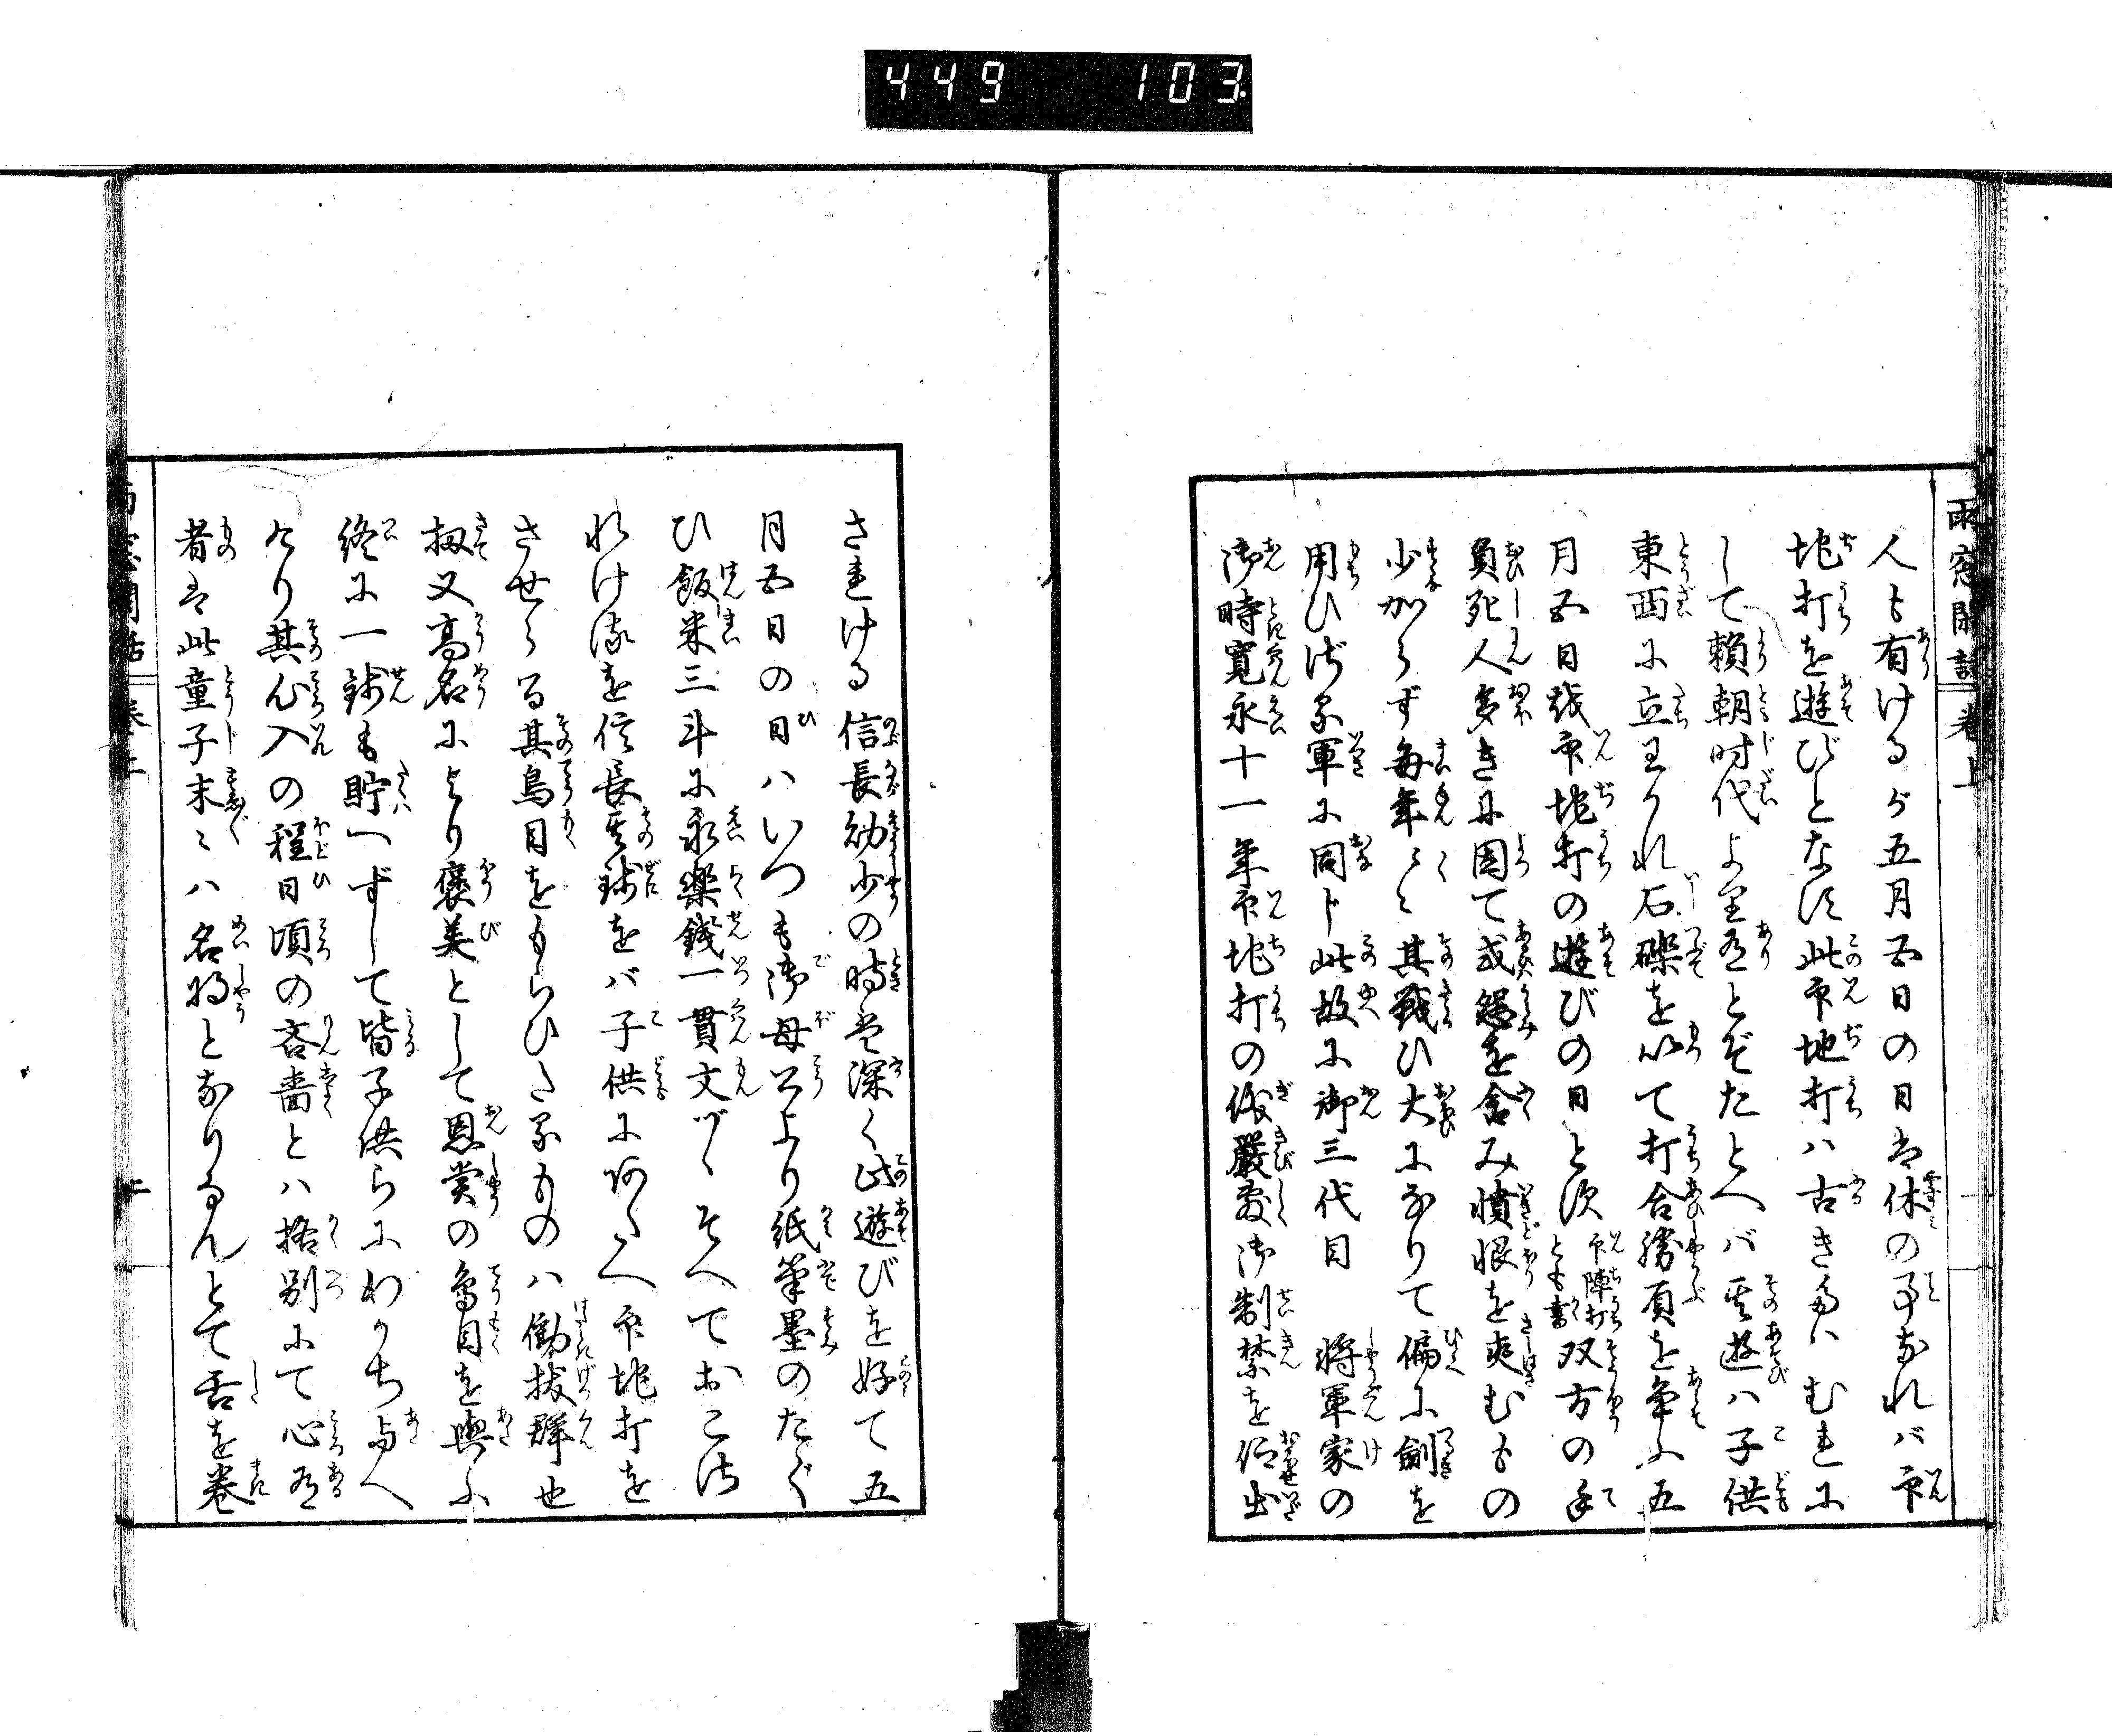 449 103
雨窓閑話 巻上
人も有けるが五月五日の日は休の事なれバ印
地打を遊びとなす此印地打ハ古き事ハむれに
して頼朝時代より有とぞたとへバ其遊ハ子供
東西に立わかれ石礫を以て打合勝負を争ふ五
月五日を印地打の遊びの日とす印陣打とも書双方の手
負死人多きに因て或怨を含み憤恨を夾むもの
少からず毎年々々其戦ひ大になりて偏に劍を
用ひず軍に同じ此故に御三代目 将軍家の
御時寛永十一年印地打の儀嚴敷御制禁を仰出
されける信長幼少の時は深く此遊びを好て五
月五日の日ハいつも御母公より紙筆墨のたぐ
ひ飯米三斗に永樂錢一貫文づゝそへておこさ
れける信長其錢をバ子供にあたへ印地打を
させらる其鳥目をもらひたるものハ働拔群也
扨又高名により褒美として恩賞の鳥目を與ふ
終に一錢も貯へずして皆子供らにわかち与へ
たり其心入の程日頃の吝嗇とハ格別にて心有
者は此童子末々ハ名将となりなんとて舌を巻